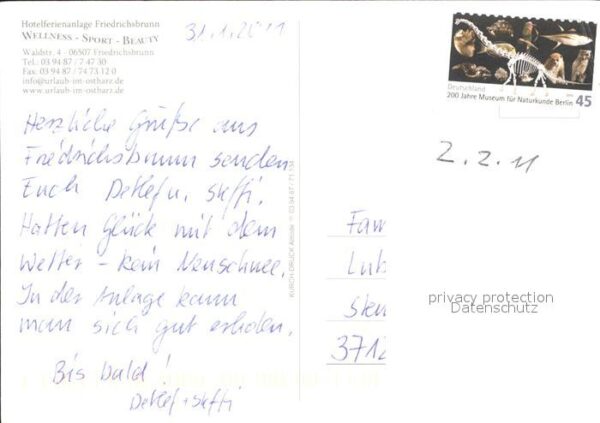 Hotelferienanlage Friedrichsbrunn
WELLNESS - SPORT - BEAUTY
Waldstr. 4 - 06507 Friedrichsbrunn
Tel.: 03 94 87 / 7 47 30
Fax: 03 94 87 / 74 73 12 0
info@urlaub-im-ostharz.de
www.urlaub-im-ostharz.de
31.1.2011
Herzliche Grüße aus
Friedrichsbrunn senden
Euch Detlef u. Steffi.
Hatten Glück mit dem
Wetter - kein Neuschnee.
In der Anlage kann
man sich gut erholen.
Bis bald!
Detlef + Steffi
KURCH-DRUCK Allrode 03 94 87 / 71 538
Deutschland
200 Jahre Museum für Naturkunde Berlin
45
2.2.11
Fam
Lub
Sten
3712
privacy protection
Datenschutz